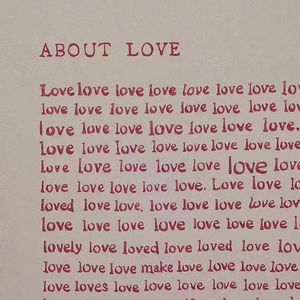 ABOUT LOVE
Love love love love love love love lov
love love love love love love love love
love love love love love love love.
love love love love love love love
love love love love love love love
love love love love love. Love love l
loved love love. love love love love love
love love love love love love love love
lovely love loved love loved love love
love love love make love love love love
love loves love love love love love love